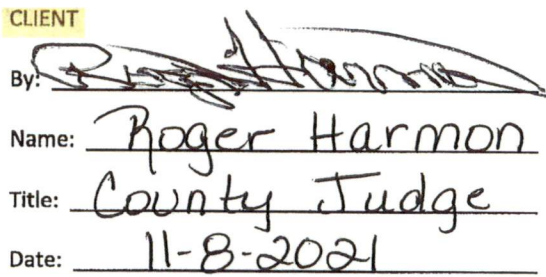 CLIENT
By: Roger Harmon
Name: Roger Harmon
Title: County Judge
Date: 11-8-2021